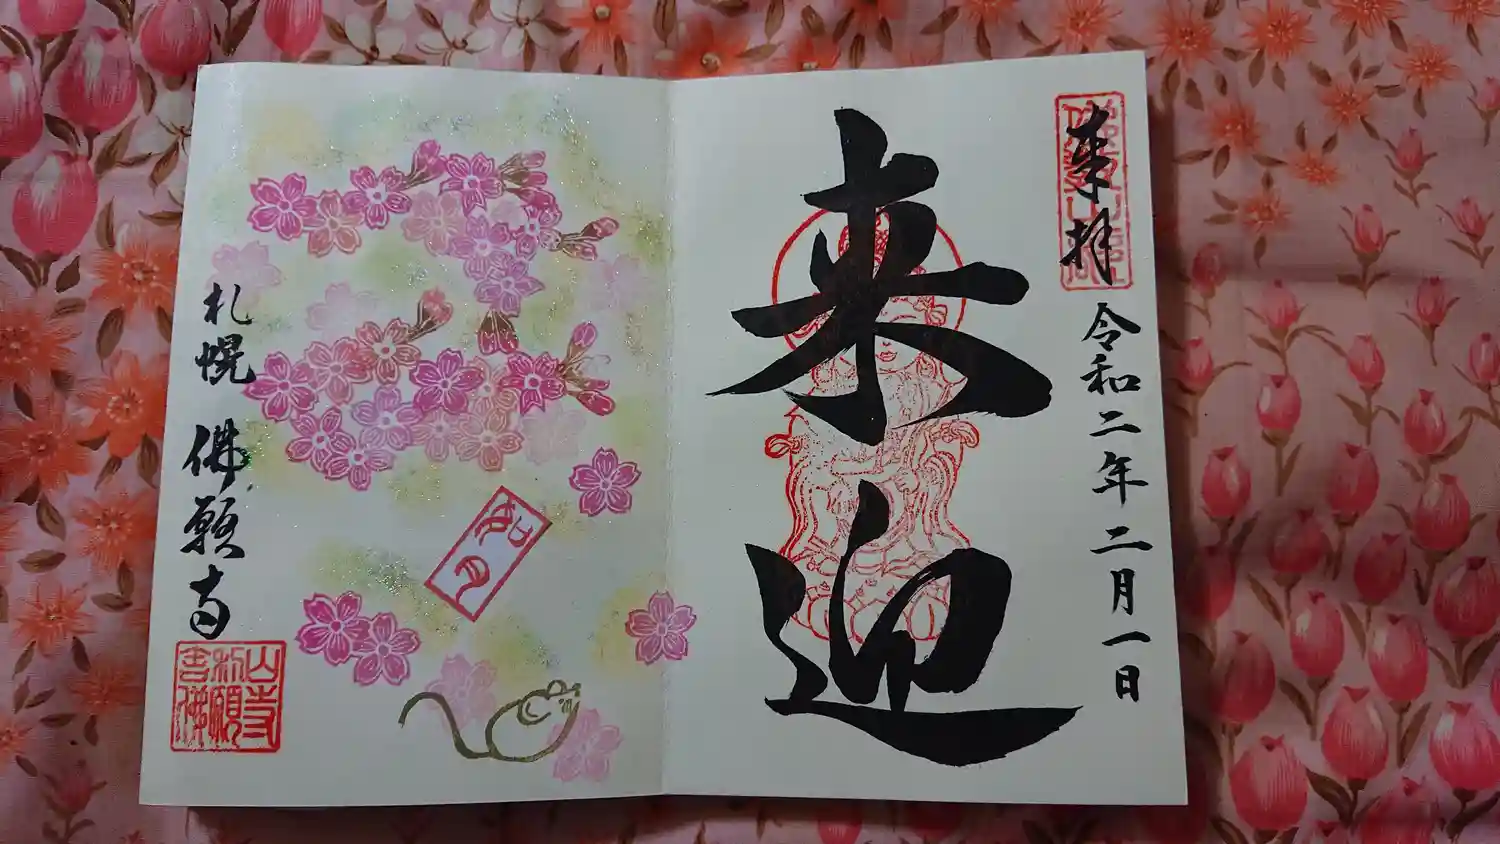 来拝
令和二年二月一日
来迎
如月
札幌 佛願寺